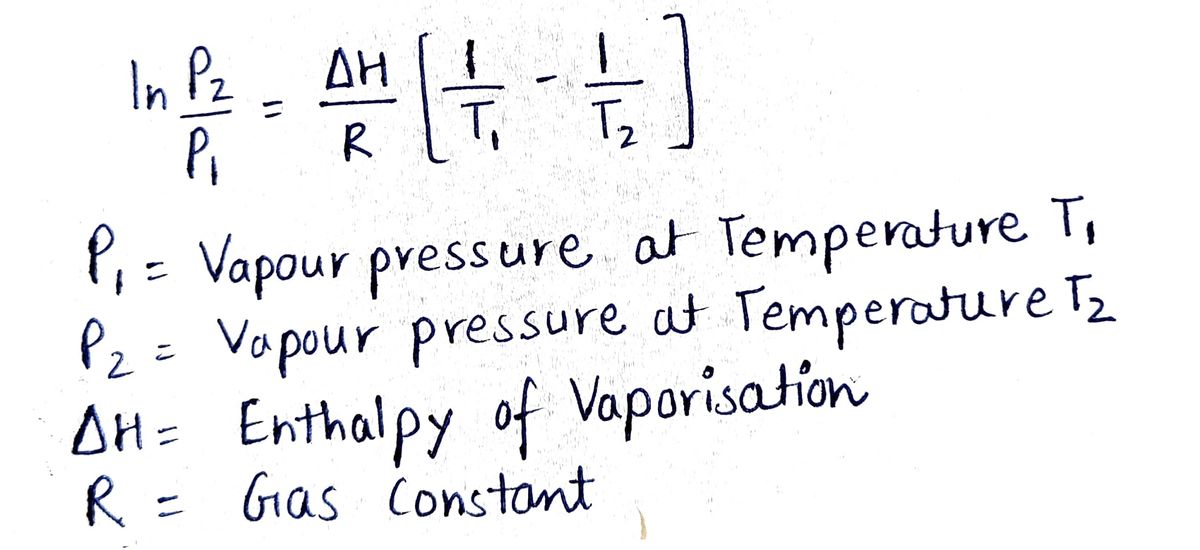 ln P₂/P₁ = ΔH/R [1/T₁ - 1/T₂]
P₁ = Vapour pressure at Temperature T₁
P₂ = Vapour pressure at Temperature T₂
ΔH = Enthalpy of Vaporisation
R = Gas Constant